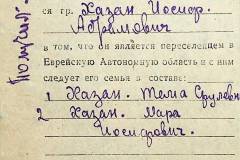 Получил.
ся гр. Хазан. Иосиф.
Абрамович
в том, что он является переселенцем в
Еврейскую Автономную область и с ним
следует его семья в составе:
1 Хазан. Темa Срулевн
2 Хазан. Мара
Иосифович.